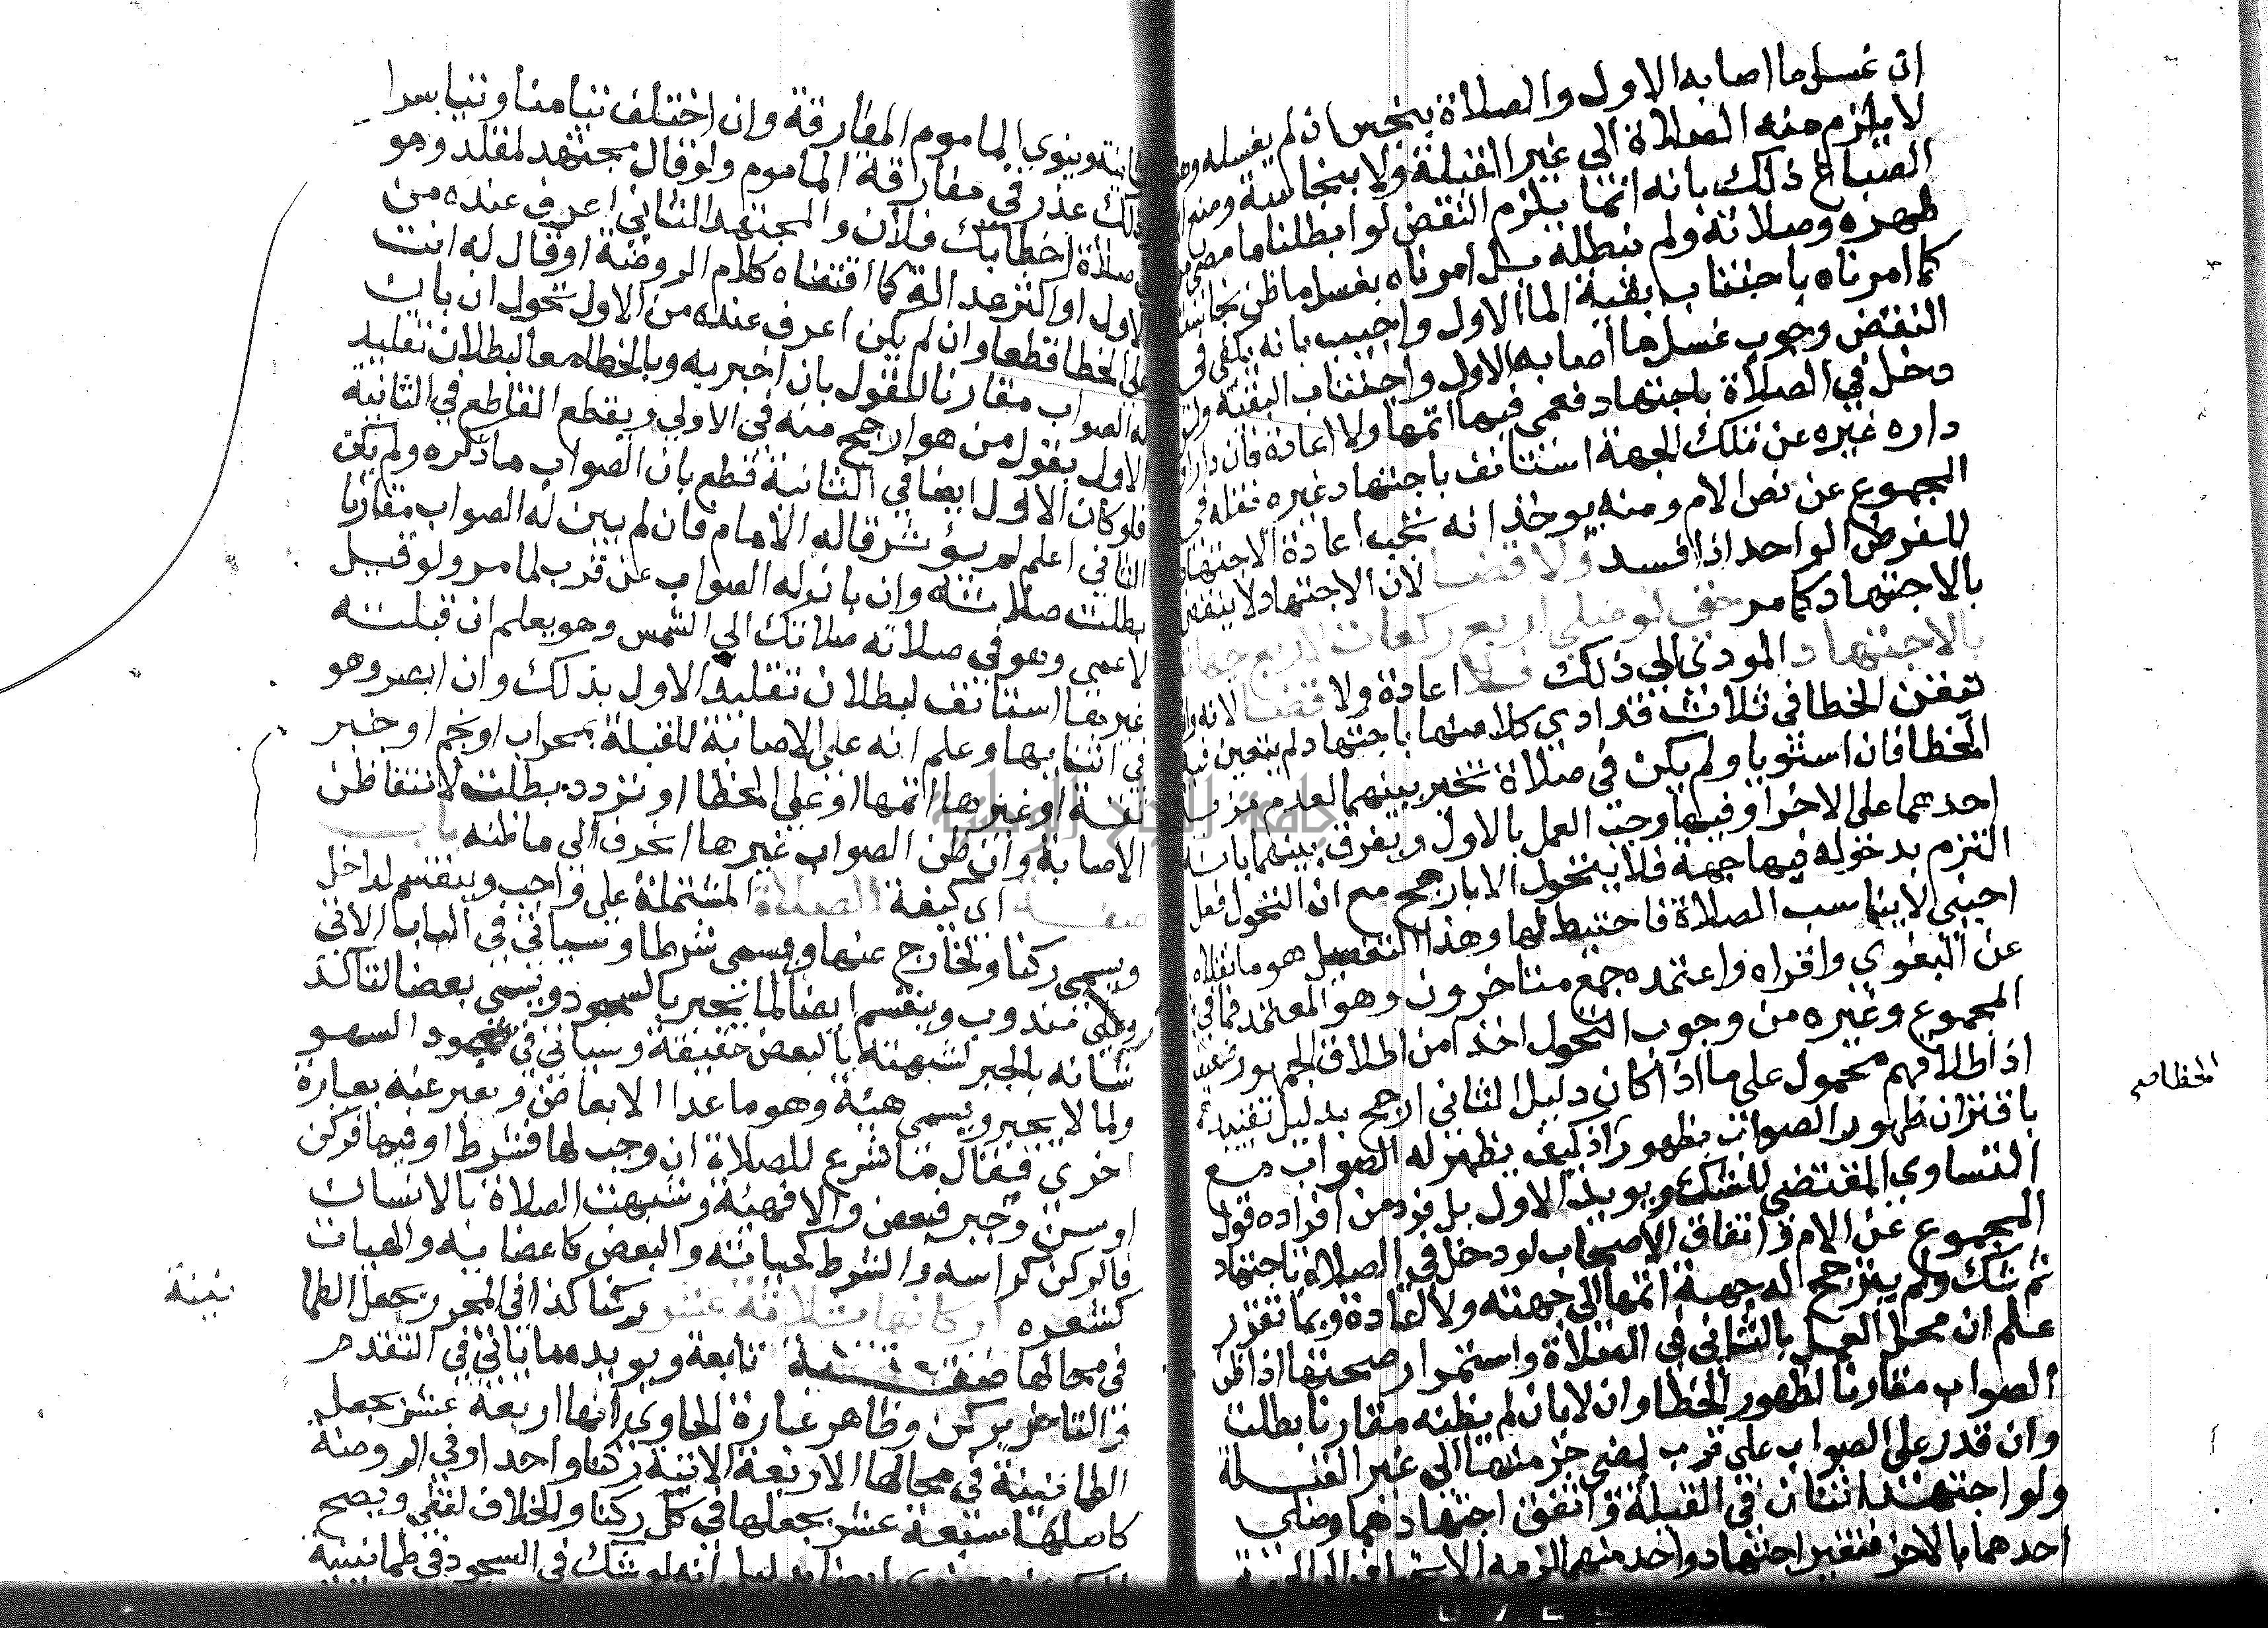 ان غسل ما اصابه الاول والصلاة بنجس ان لم يغسله ومنع
لا يلزم منه الصلاة الى غير القبلة ولا بنجاسة ومنع ابن
الصباغ ذلك بانه انما يلزم النقض لو ابطلنا ما مضى من
طهره وصلاته ولم نبطله بل امرناه بغسل ما ظن نجاسته
كما امرناه باجتناب بقية الما الاول واجيب بانه يكفى في
النقض وجوب غسل ما اصابه الاول واجتناب البقية ولو
دخل في الصلاة باجتهاد فعمى فيها اتمها ولا اعادة فان دار او
داره غيره عن تلك الجهة استانف باجتهاد غيره نقله في
المجموع عن نص الام ومنه يوخذ انه تجب اعادة الاجتهاد
للفرض الواحد اذا فسد ولا قضا لان الاجتهاد لا ينقض
بالاجتهاد كما مر حتى لو صلى اربع ركعات لاربع جهات
بالاجتهاد المودى الى ذلك فلا اعادة ولا قضا لانه وان
تيقن الخطا في ثلاث فقد ادى كلا منها باجتهاد لم يتعين فيه
الخطا فان استويا ولم يكن في صلاة تخير بينهما لعدم مزية
احدهما على الاخر او فيها وجب العمل بالاول ويفرق بينهما بانه
التزم بدخوله فيها جهة فلا يتحول الا بارجح مع ان التحول فعل
اجنبي لا يناسب الصلاة فاحتيط لها وهذا التفصيل هو ما نقلاه
عن البغوي واقراه واعتمده جمع متاخرون وهو المعتمد فما في
المجموع وغيره من وجوب التحول اخذا من اطلاق الجمهور ضعيف
اذ اطلاقهم محمول على ما اذا كان دليل الثاني ارجح بدليل تقييده
باقتران ظهور الصواب بظهور اذ كيف يظهر له الصواب مع
التساوي المقتضى للشك ويويد الاول بل فرد من افراده قول
المجموع عن الام واتفاق الاصحاب لو دخل في الصلاة باجتهاد
ثم شك ولم يترجح له جهة اتمها الى جهته ولا اعادة وبما تقرر
علم ان محل العمل بالثاني في الصلاة واستمرار صحتها اذا ظن
الصواب مقارنا لظهور الخطا وان لا بان لم يظنه مقارنا بطلت
وان قدر على الصواب على قرب لمضى جز منها الى غير القبلة
ولو اجتهد اثنان في القبلة واتفق اجتهادهما وصلى
احدهما بالاخر فتغير اجتهاد واحد منهما لزمه الانحراف الى الجهة
الخطا صح
الثانية وينوي الماموم المفارقة وان اختلف تيامنا وتياسرا
وذلك عذر في مفارقة الماموم ولو قال مجتهد لمقلد وهو
في صلاة اخطا بك فلان والمجتهد الثاني اعرف عنده من
الاول او اكثر عدالة كما اقتضاه كلام الروضة او قال له انت
على الخطا قطعا وان لم يكن اعرف عنده من الاول تحول ان بان
له الصواب مقارنا للقول بان اخبر به وبالخطا معا لبطلان تقليد
الاول بقول من هو ارجح منه في الاولى وبقطع القاطع في الثانية
فلو كان الاول ايضا في الثانية قطع بان الصواب ما ذكره ولم يكن
الثاني اعلم لم يؤثر قاله الامام فان لم يبن له الصواب مقارنا
بطلت صلاته وان بان له الصواب عن قرب لما مر ولو قيل
لاعمى وهو في صلاته صلاتك الى الشمس وهو يعلم ان قبلته
غيرها استانف لبطلان تقليد الاول بذلك وان ابصر وهو
في اثنايها وعلم انه على الاصابة للقبلة بمحراب او نجم او خبر
ثقة او غيرها اتمها او على الخطا او تردد بطلت لانتفا ظن
الاصابة وان ظن الصواب غيرها انحرف الى ما ظنه باب
صفة اى كيفية الصلاة المشتملة على واجب وينقسم لداخل
ويسمى ركنا ولخارج عنها ويسمى شرطا وسياتي في الباب الاتي
وعلى مندوب وينقسم ايضا لما يجبر بالسجود ويسمى بعضا لتاكد
شانه بالجبر لشبهته بالبعض حقيقة وسياتي في سجود السهو
ولما لا يجبر ويسمى هيئة وهو ما عدا الابعاض ويعبر عنه بعبارة
اخرى فيقال ما شرع للصلاة ان وجب لها فشرط او فيها فركن
او سن وجبر فبعض والا فهيئة وشبهت الصلاة بالانسان
فالركن كراسه والشرط كحياته والبعض كاعضايه والهيات
كشعره اركانها ثلاثة عشر ركنا كذا في المحرر بجعل الطما
نينة
في محالها صفة تابعة ويويده ما ياتي في التقدم
والتاخر بركن وظاهر عبارة الحاوي انها اربعة عشر بجعل
الطمانينة في محالها الاربعة الاتية ركنا واحدا وفي الروضة
كاصلها سبعة عشر بجعلها في كل ركنا والخلاف لفظي ويصح
ايضا بدليل انه لو شك في السجود في طمانينة